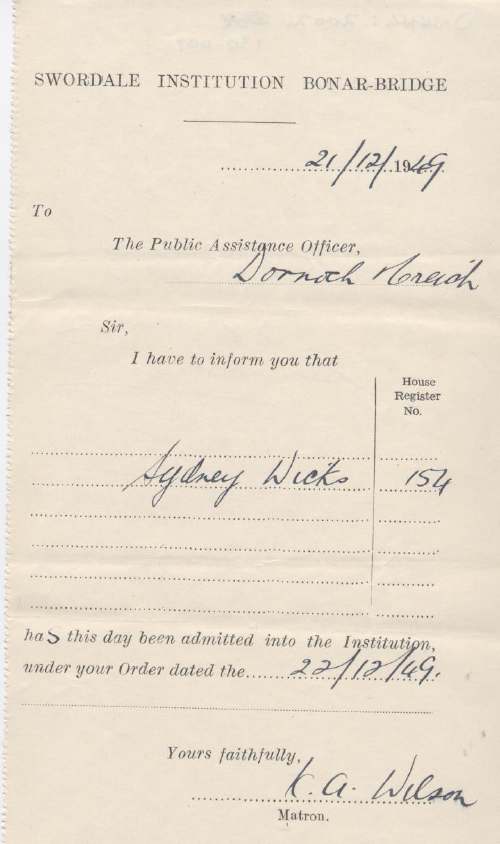 SWORDALE INSTITUTION BONAR-BRIDGE
21/12/1949
To
The Public Assistance Officer,
Dornoch & Creich
Sir,
I have to inform you that
House
Register
No.
Sydney Wicks 154
has this day been admitted into the Institution,
under your Order dated the 22/12/49.
Yours faithfully,
K. A. Wilson
Matron.